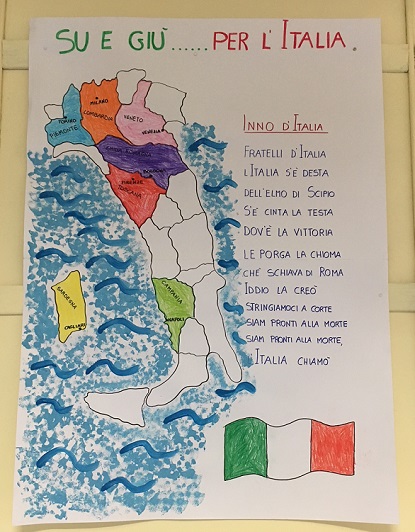 SU E GIÙ......PER L'ITALIA
MILANO
LOMBARDIA
TORINO
PIEMONTE
VENETO
VENEZIA
EMILIA ROMAGNA
BOLOGNA
FIRENZE
TOSCANA
SARDEGNA
CAGLIARI
CAMPANIA
NAPOLI
INNO D'ITALIA
FRATELLI D'ITALIA
L'ITALIA S'È DESTA
DELL'ELMO DI SCIPIO
S'È CINTA LA TESTA
DOV'È LA VITTORIA
LE PORGA LA CHIOMA
CHÈ SCHIAVA DI ROMA
IDDIO LA CREÒ
STRINGIAMOCI A CORTE
SIAM PRONTI ALLA MORTE
SIAM PRONTI ALLA MORTE,
L'ITALIA CHIAMÒ